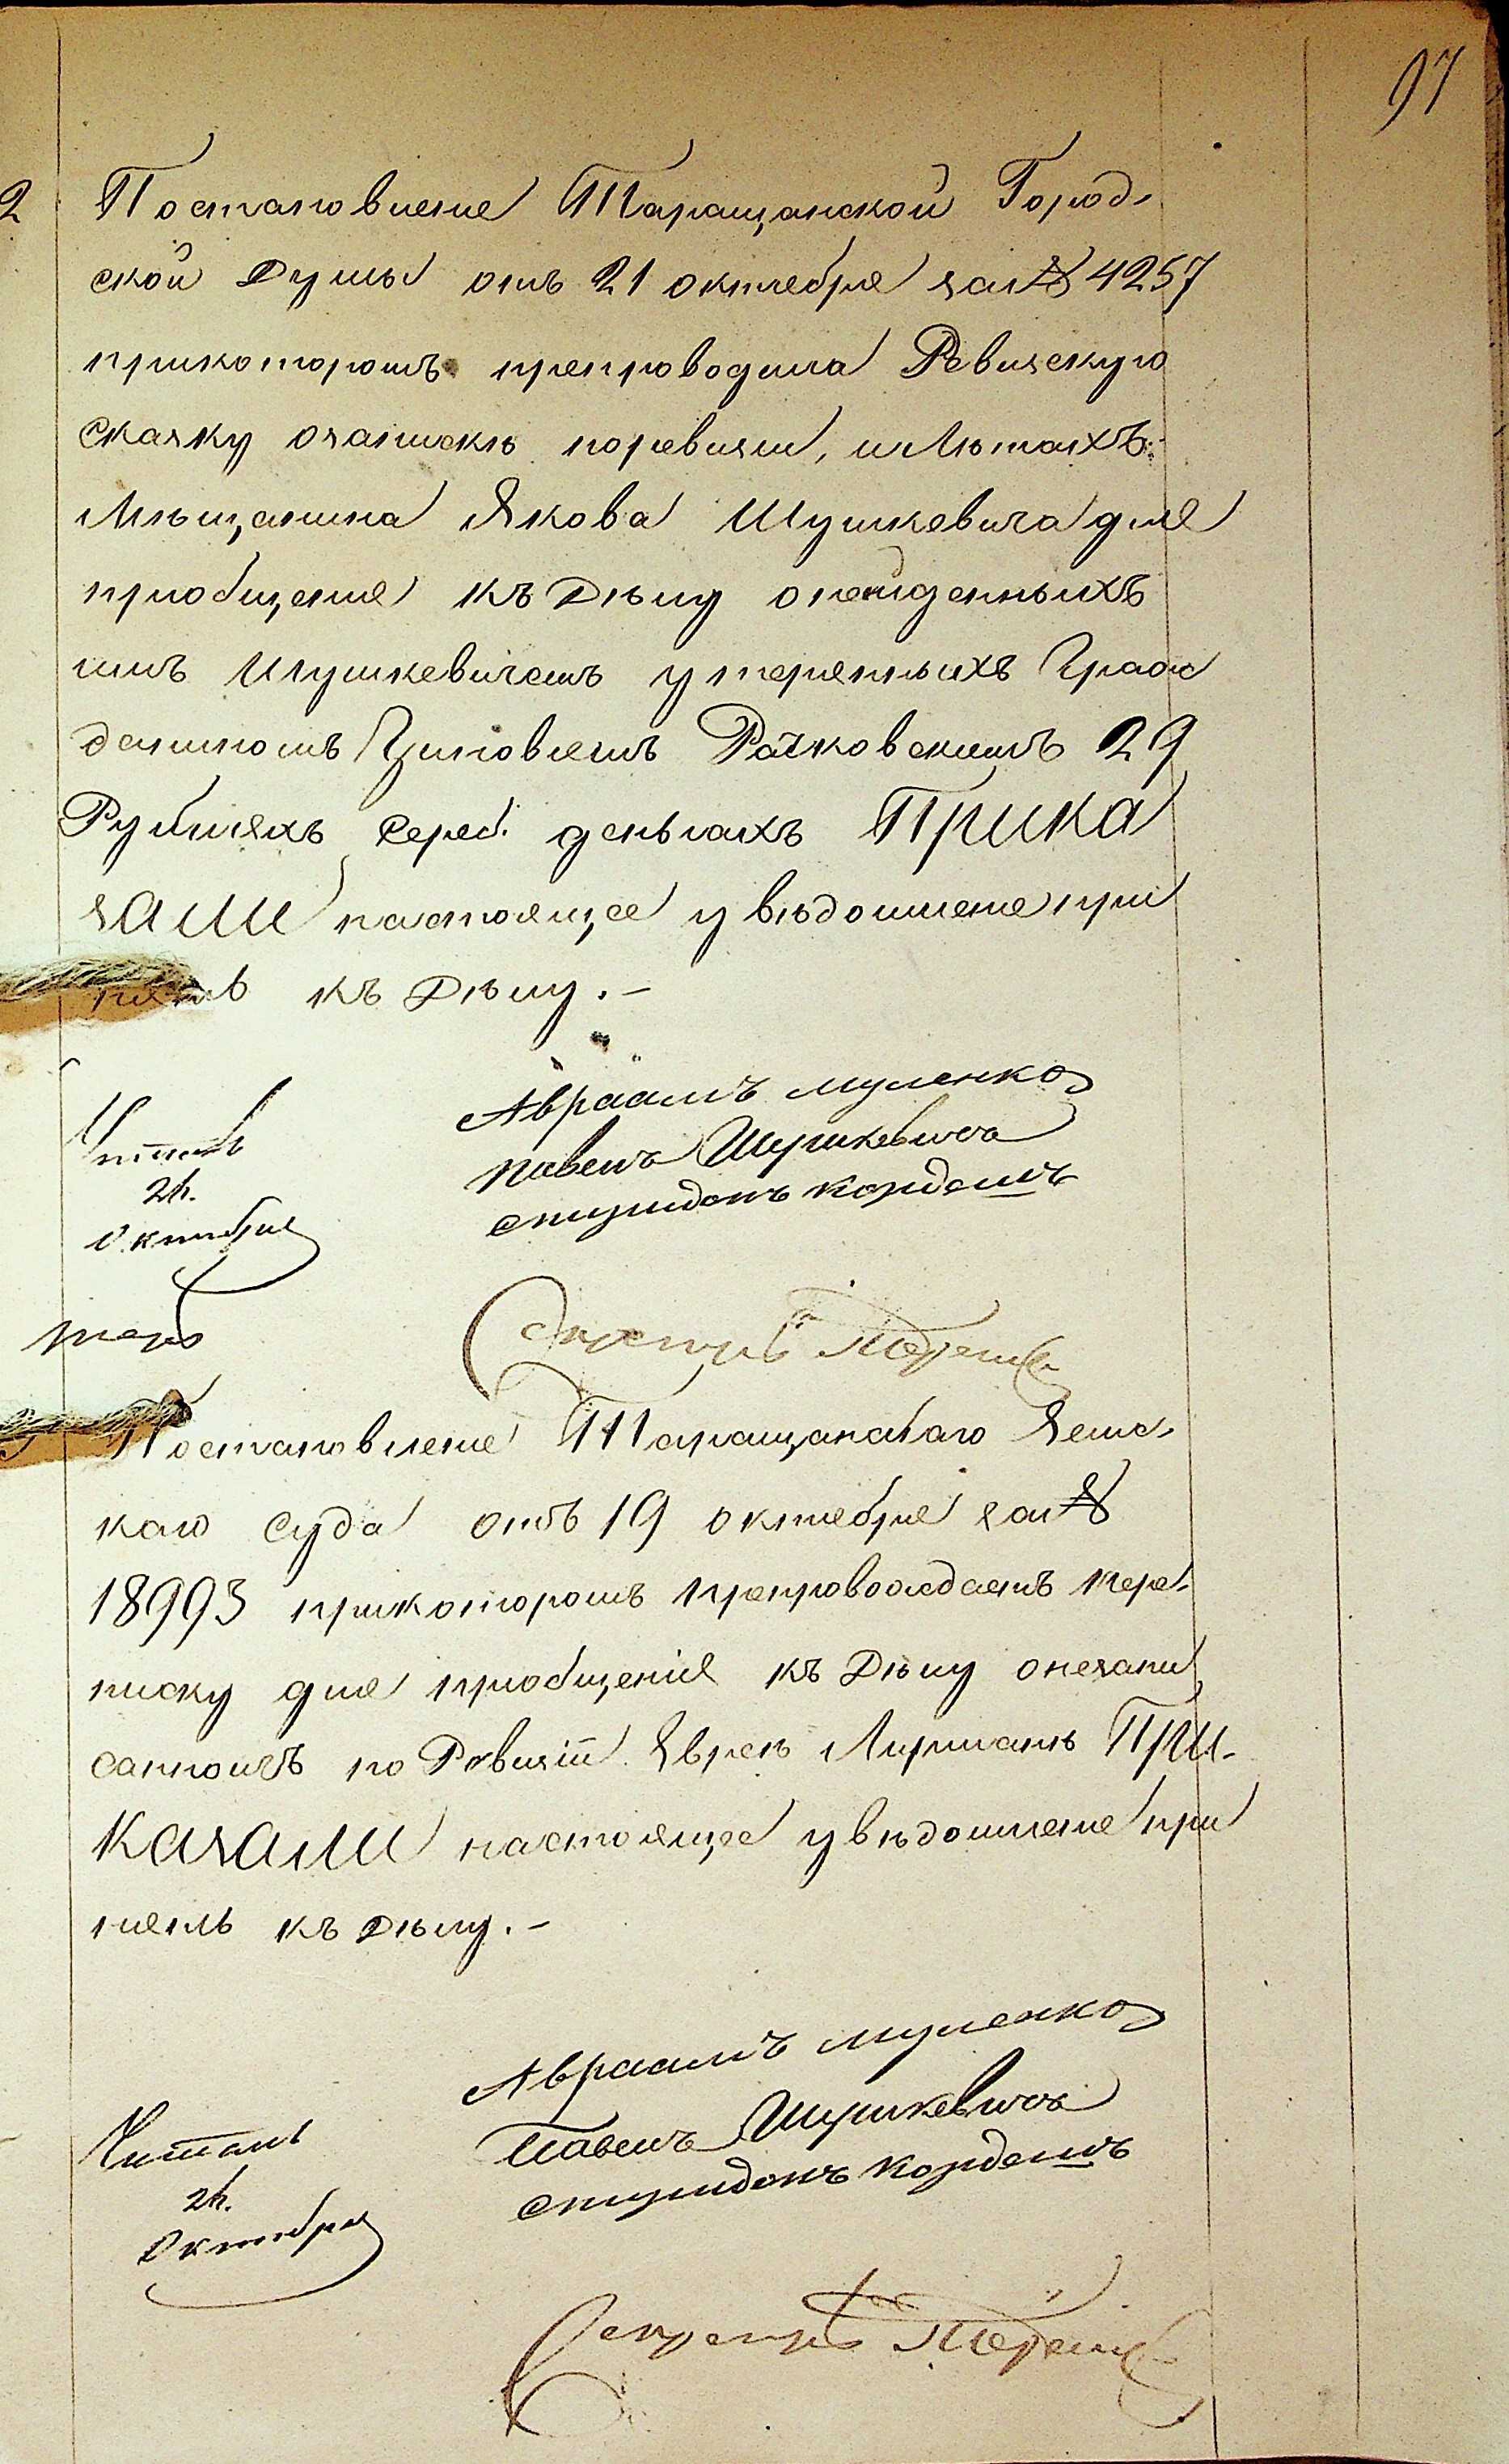 97
2
Постановление Таращанской Город-
ской Думы отъ 21 октебря за № 4257
прикоторомъ препроводила Ревизскую
Сказку озаписке поревизи, илѣтахъ
Мѣщанина Якова Шушкевича для
приобщение къ Дѣлу о найденныхъ
имъ Шушкевичемъ утерянныхъ Граж
даниномъ Рачковскимъ 29
Рубляхъ Сереб. деньгахъ Прика
зали настоящее увѣдомление при
нять къ Дѣлу.-
Авраамъ Муленко
Павелъ Шушкевичъ
Спиридонъ
Читалъ
24.
Октября
Секретарь
Постановление Таращанскаго Земс-
каго Суда отъ 19 октебря за №
18993 прикоторомъ препровождаетъ пере-
писку для приобщенія къ Дѣлу о незапи
санномъ по Ревизіи Еврею Лирманъ При-
казали настоящее увѣдомление при
нять къ Дѣлу.-
Авраамъ Муленко
Павелъ Шушкевичъ
Спиридонъ
Читалъ
24.
Октября
Секретарь